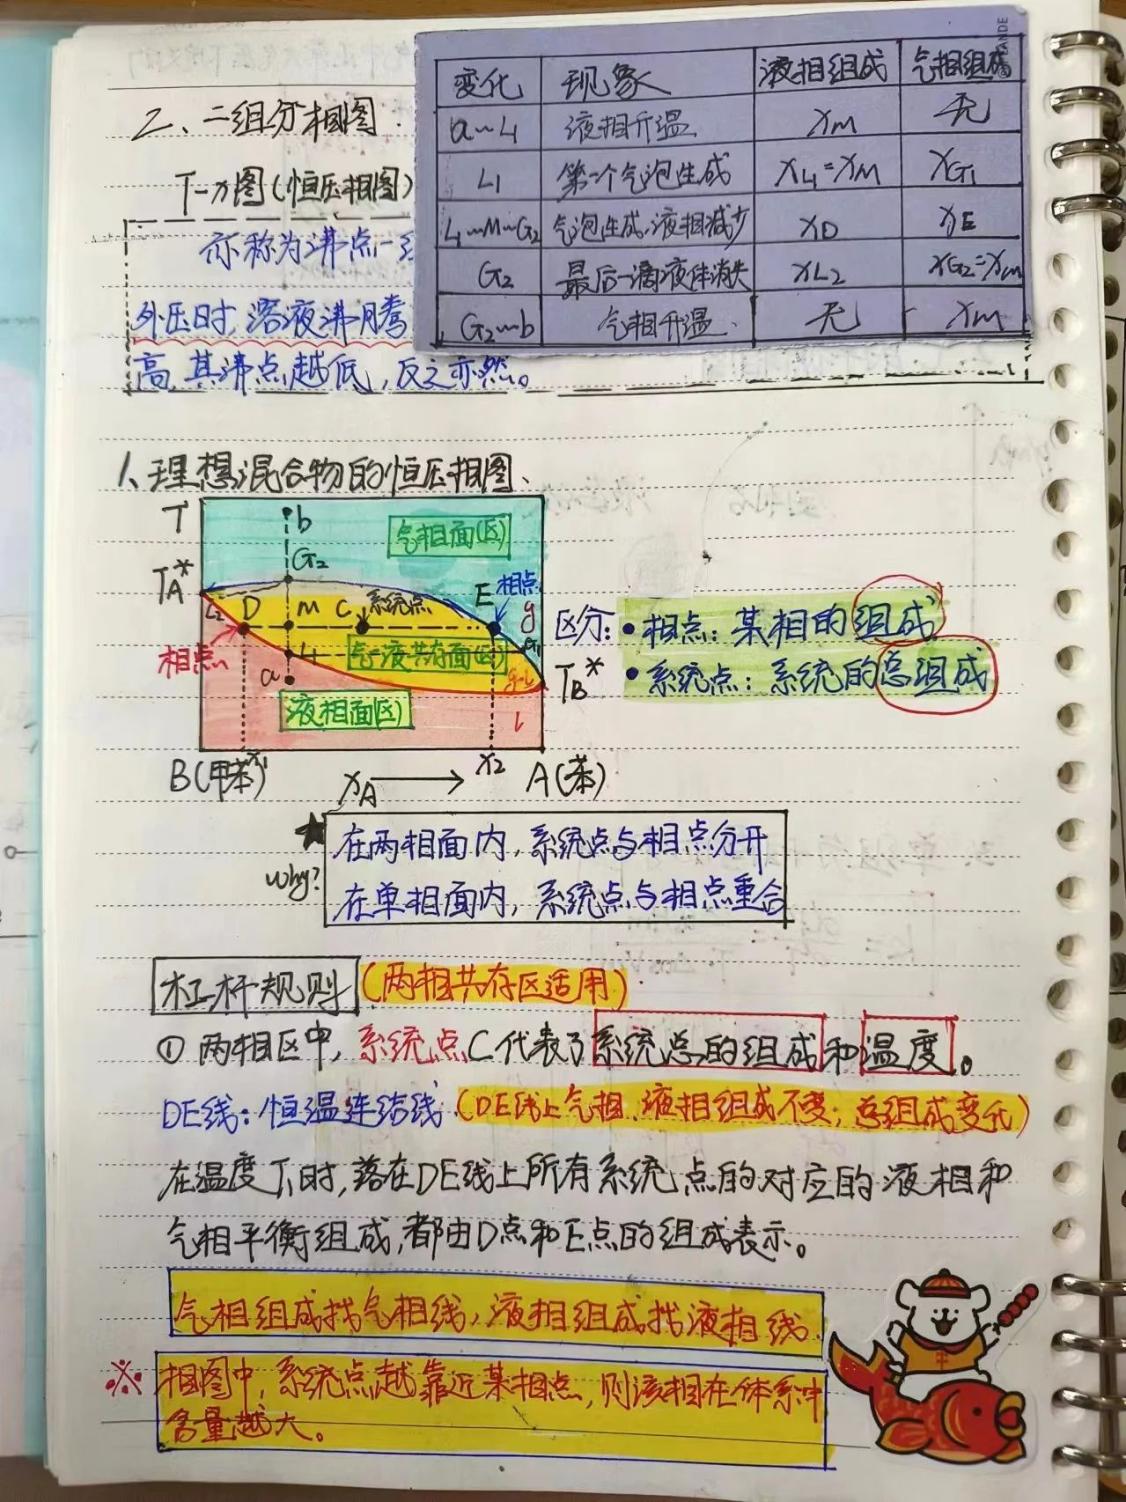 二、二组分相图
T-x图(恒压相图)
亦称为沸点-
外压时,溶液沸腾
高,其沸点越低,反之亦然。
变化 现象 液相组成 气相组成
a~L1 液相升温 xM 无
L1 第一个气泡生成 xL1=xM xG1
L1~M~G2 气泡生成,液相减少 xD xE
G2 最后一滴液体消失 xL2 xG2=xM
G2~b 气相升温 无 xM
1、理想混合物的恒压相图、
T
b
气相面(区)
G2
TA*
L2 D M C 系统点 E 相点
g
G1
相点
L1
气-液共存面(区)
g-l
TB*
a
液相面(区)
l
x1 x2
B(甲苯) xA A(苯)
区分:•相点:某相的组成
•系统点:系统的总组成
★
why?
在两相面内,系统点与相点分开
在单相面内,系统点与相点重合
杠杆规则(两相共存区适用)
① 两相区中,系统点C代表了系统总的组成和温度。
DE线:恒温连结线(DE线上气相、液相组成不变;总组成变化)
在温度T1时,落在DE线上所有系统点的对应的液相和
气相平衡组成,都由D点和E点的组成表示。
气相组成找气相线,液相组成找液相线
※ 相图中,系统点越靠近某相点,则该相在体系中
含量越大。